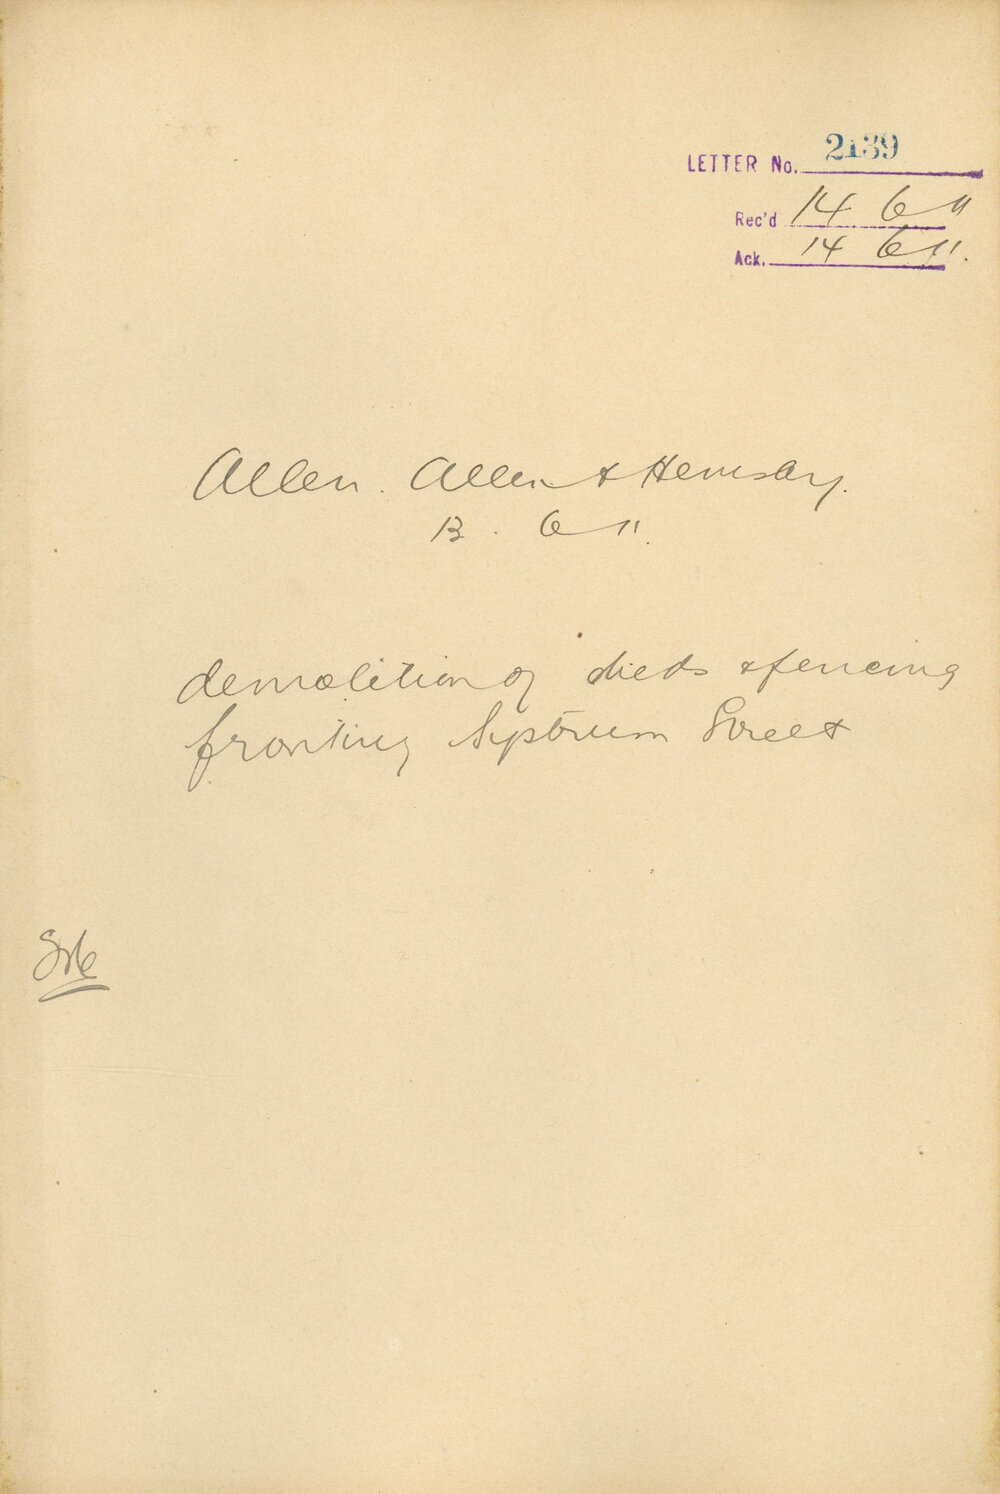 LETTER No. 2139
Rec'd 14 6 11
Ack. 14 6 11.
Allen. Allen & Hemsley.
13. 6 11.
demolition of sheds & fencing
fronting Street